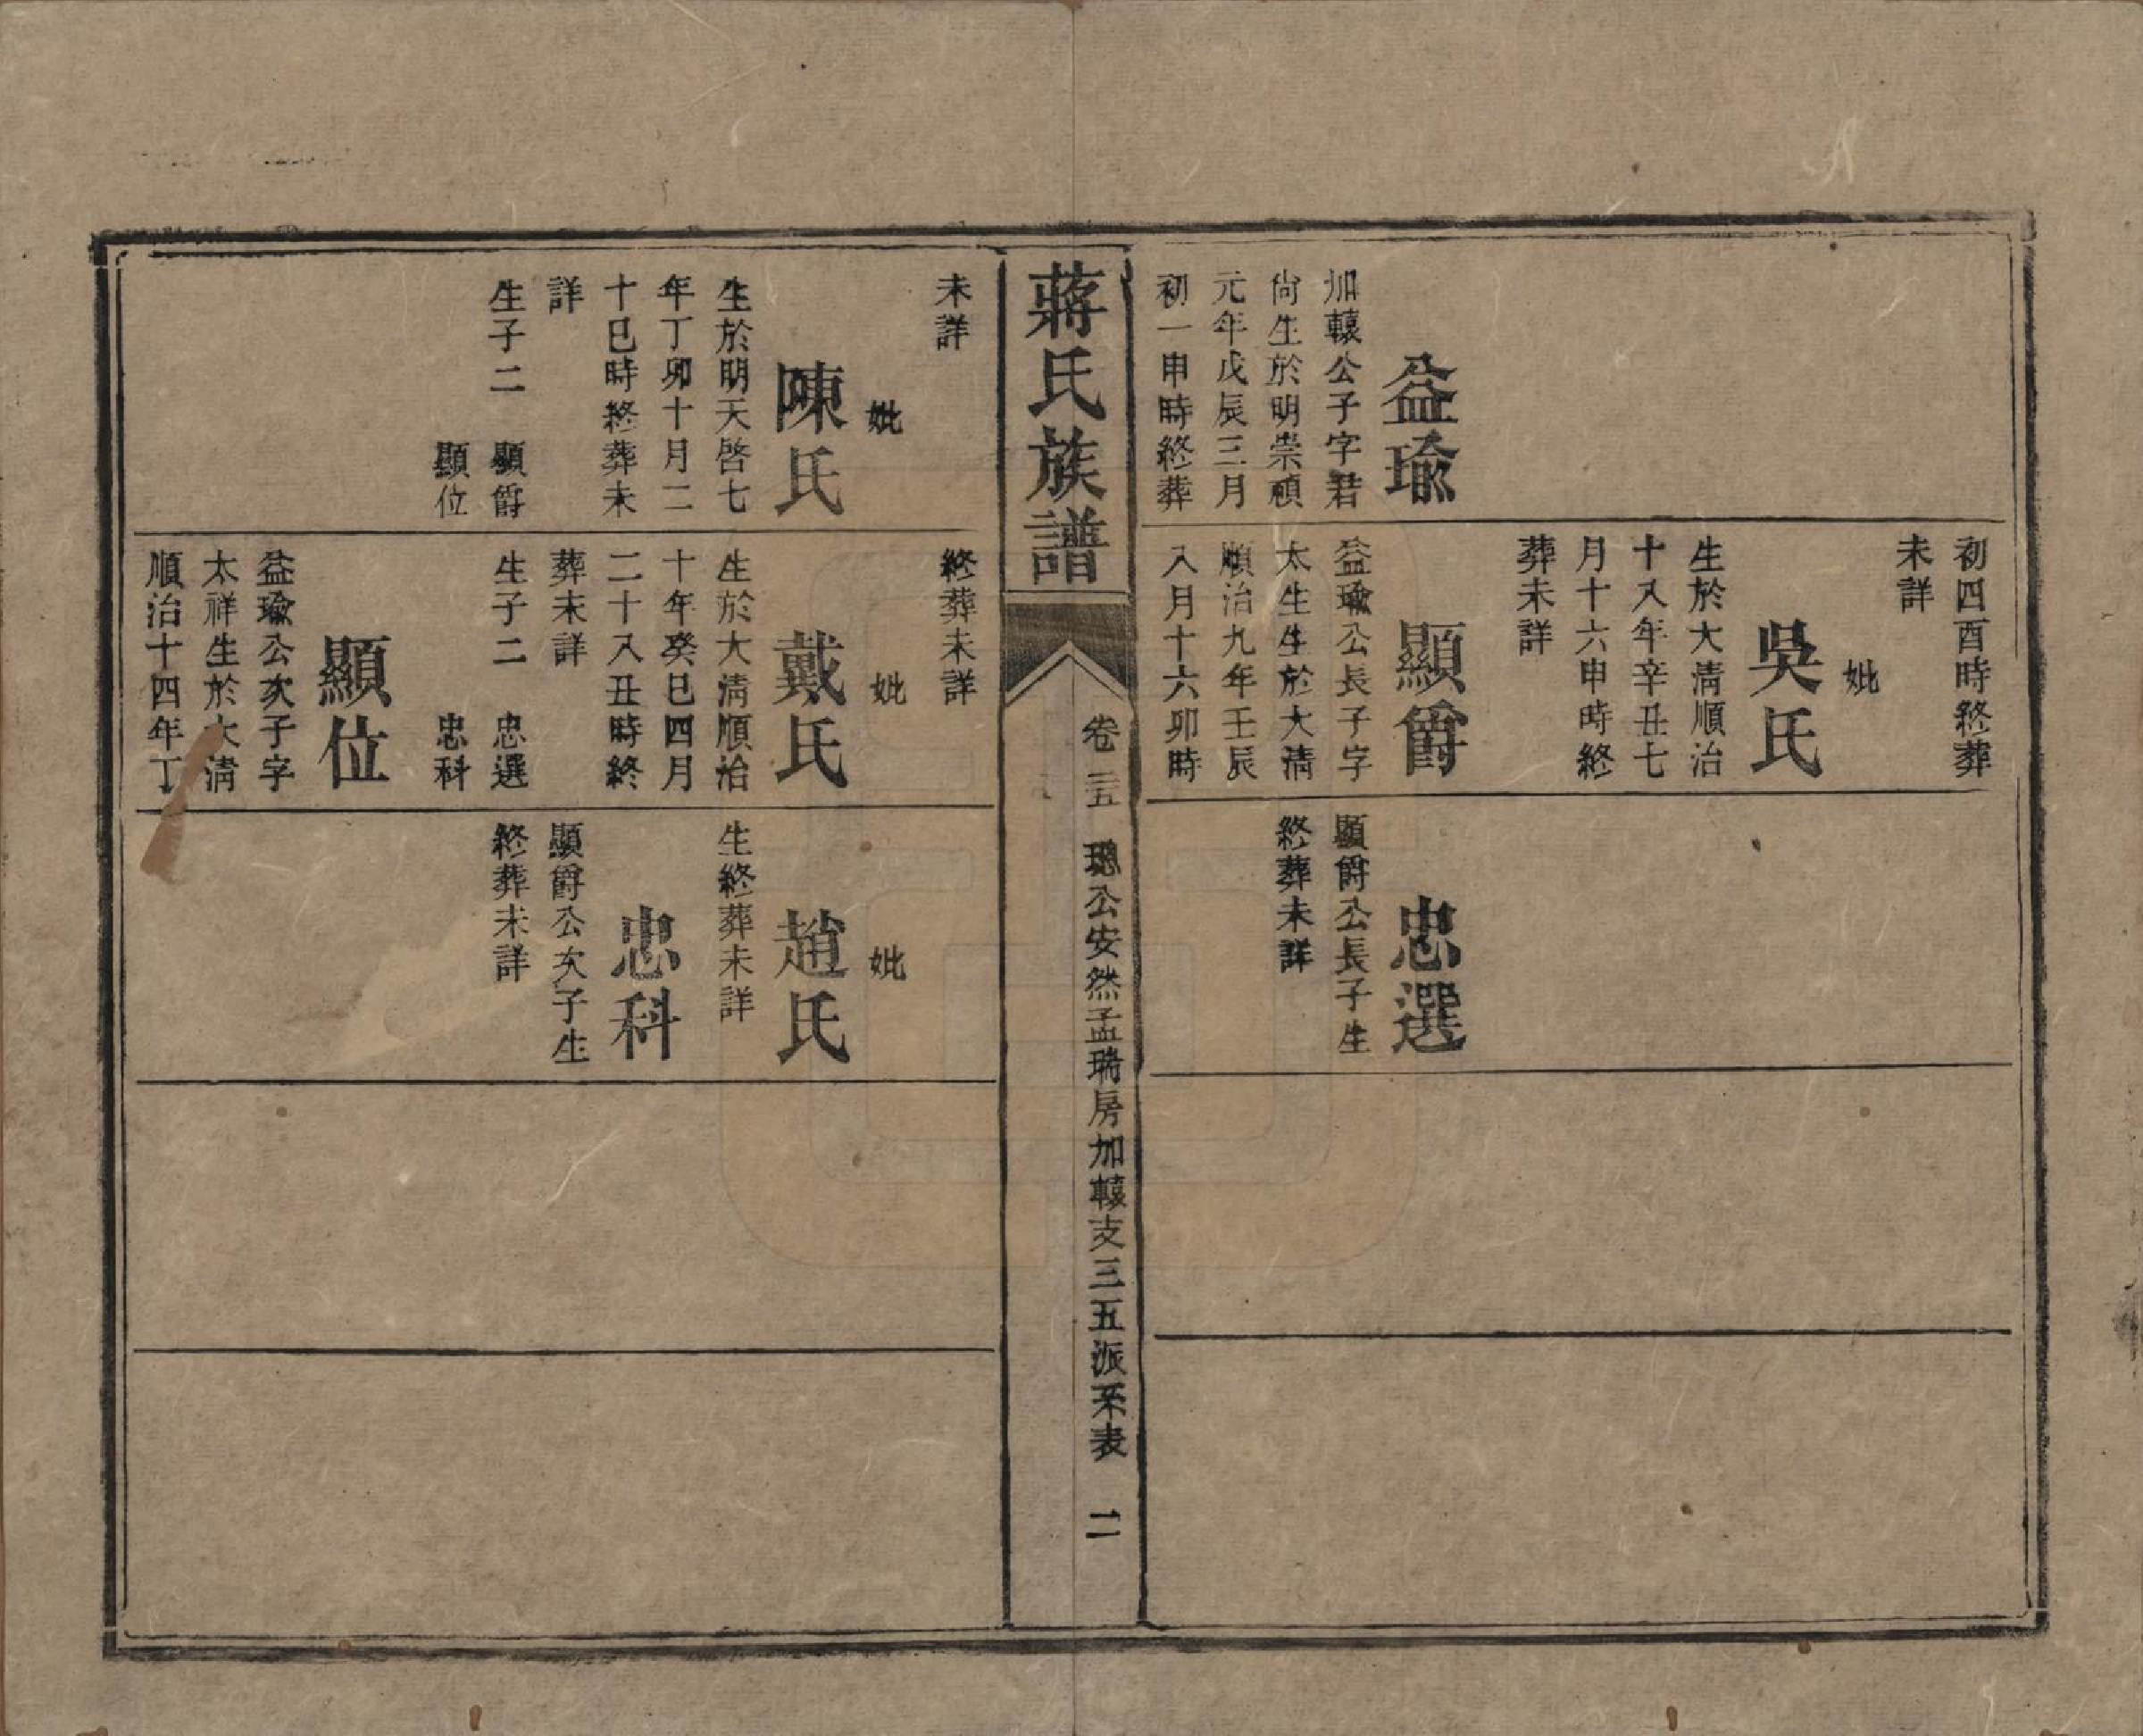 益瑜
加轅公子字君
尙生於明崇禎
元年戊辰三月
初一申時終葬
初四酉時終葬
未詳
妣
吳氏
生於大淸順治
十八年辛丑七
月十六申時終
葬未詳
顯爵
益瑜公長子字
太生生於大淸
順治九年壬辰
八月十六卯時
忠選
顯爵公長子生
終葬未詳
蔣氏族譜
卷三五
璁公安然孟瑞房加轅支三五派系表
二
未詳
妣
陳氏
生於明天啓七
年丁卯十月二
十巳時終葬未
詳
生子二 顯爵
顯位
終葬未詳
妣
戴氏
生於大淸順治
十年癸巳四月
二十八丑時終
葬未詳
生子二 忠選
忠科
顯位
益瑜公次子字
太祥生於大淸
順治十四年丁
妣
趙氏
生終葬未詳
忠科
顯爵公次子生
終葬未詳